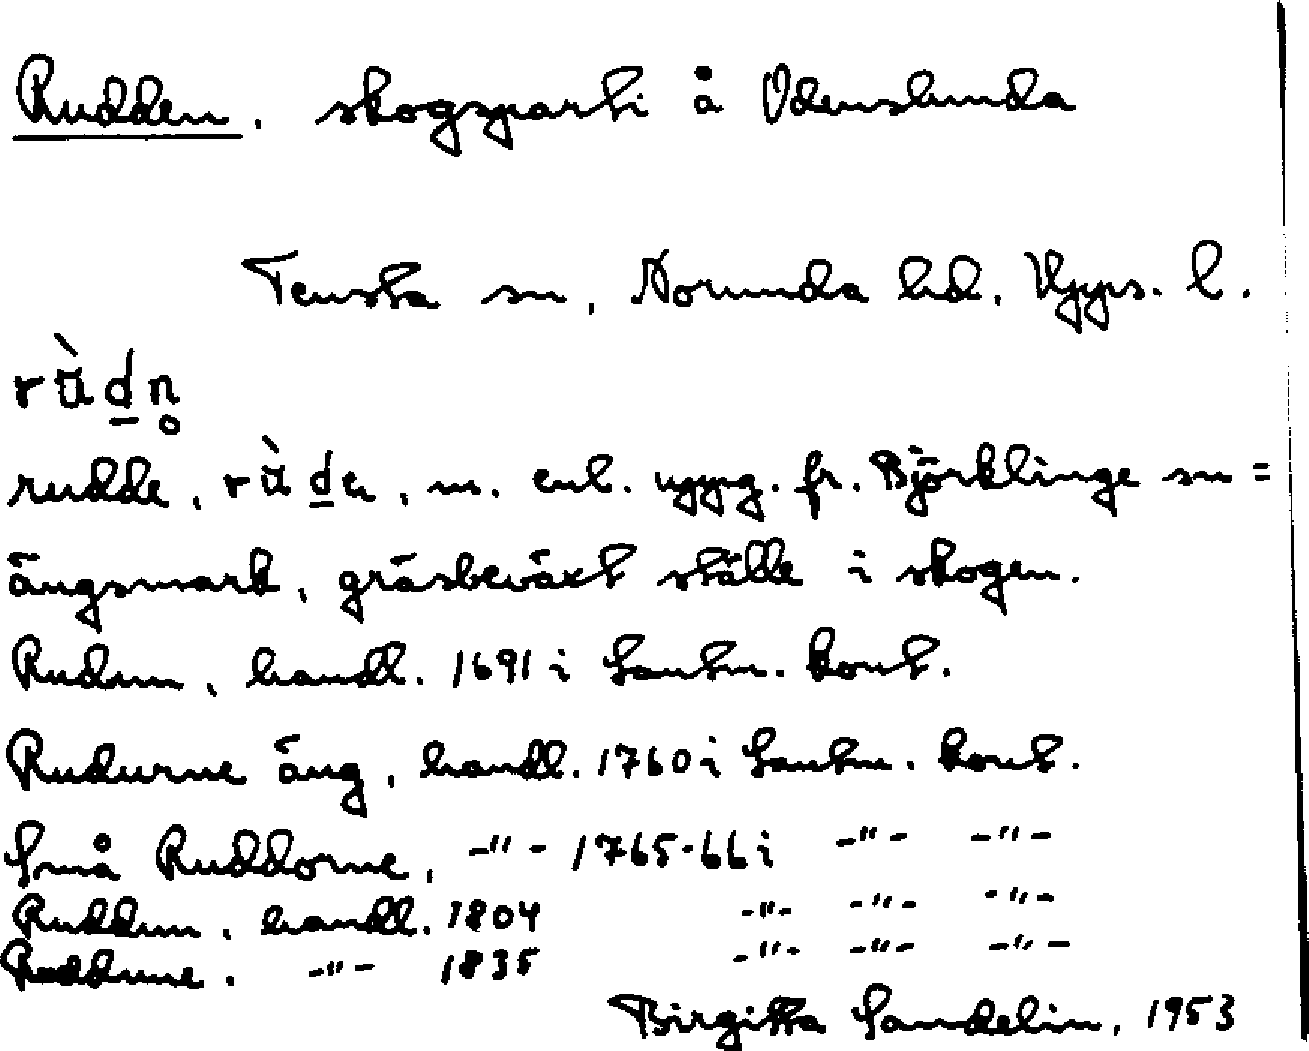 Rudden, skogsparti å Odenslunda
Tensta sn, Norunda hd, Upps. l.
rùd̲n̥
rudde, rùd̲e, m. enl. uppg. fr. Björklinge sn =
ängsmark, gräsbeväxt ställe i skogen.
Rudun, handl. 1691 i Lantm. kont.
Rudurne äng, handl. 1760 i Lantm. kont.
Små Ruddorne, -"- 1765-66 i -"- -"-
Ruddun, handl. 1804 -"- -"- -"-
-"- 1835 -"- -"- -"-
Birgitta Sandelin, 1953